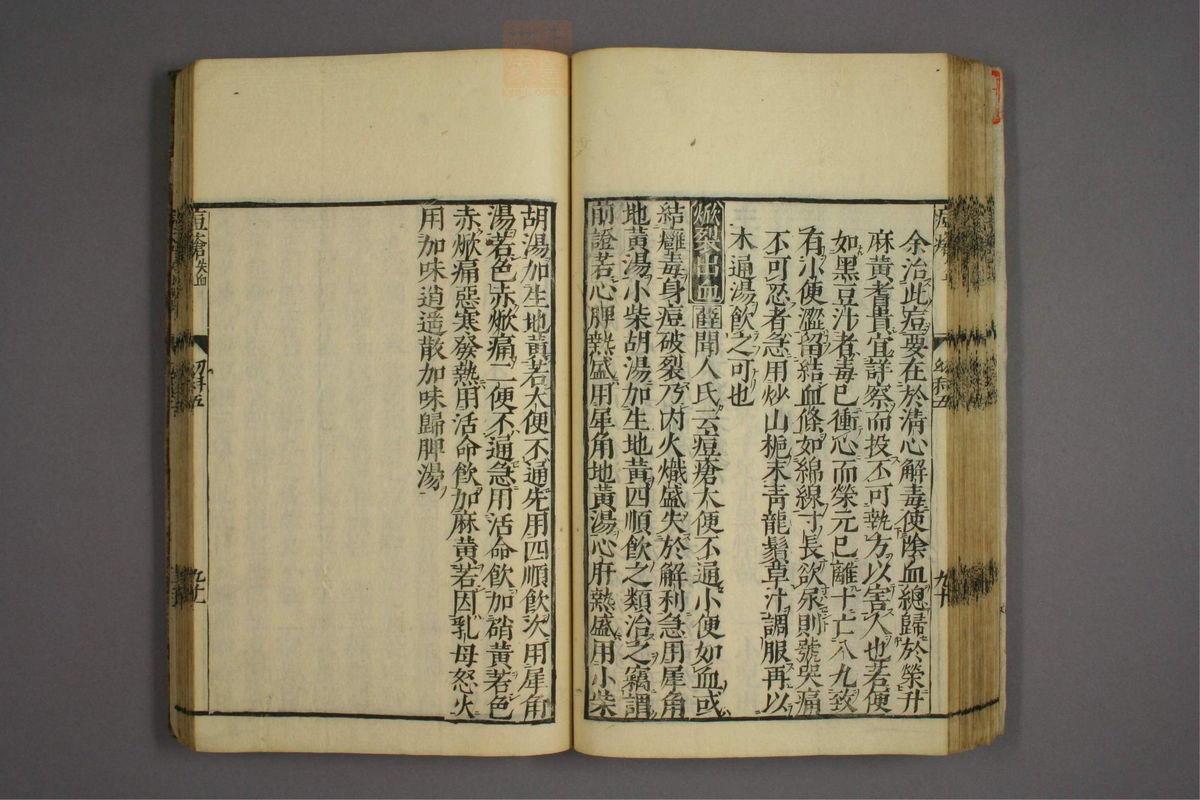 余治此痘要在於清心解毒使陰血總歸於榮升
麻黃耆貴宜詳察而投不可執方以害人也若便
如黑豆汁者毒已衝心而榮元已離十亡八九致
有小便澀留結血條如綿線寸長欲尿則號哭痛
不可忍者急用炒山梔末青龍鬚草汁調服再以
木通湯飲之可也
焮裂出血 薛 聞人氏云痘瘡大便不通小便如血或
結癰毒身痘破裂乃内火熾盛失於解利急用犀角
地黃湯小柴胡湯加生地黃四順飲之類治之竊謂
前證若心脾熱盛用犀角地黃湯心肝熱盛用小柴
胡湯加生地黃若大便不通先用四順飲次用犀角
湯若色赤焮痛二便不通急用活命飲加硝黃若色
赤焮痛惡寒發熱用活命飲加麻黃若因乳母怒火
用加味逍遥散加味歸脾湯
痘瘡 失血
幼科五